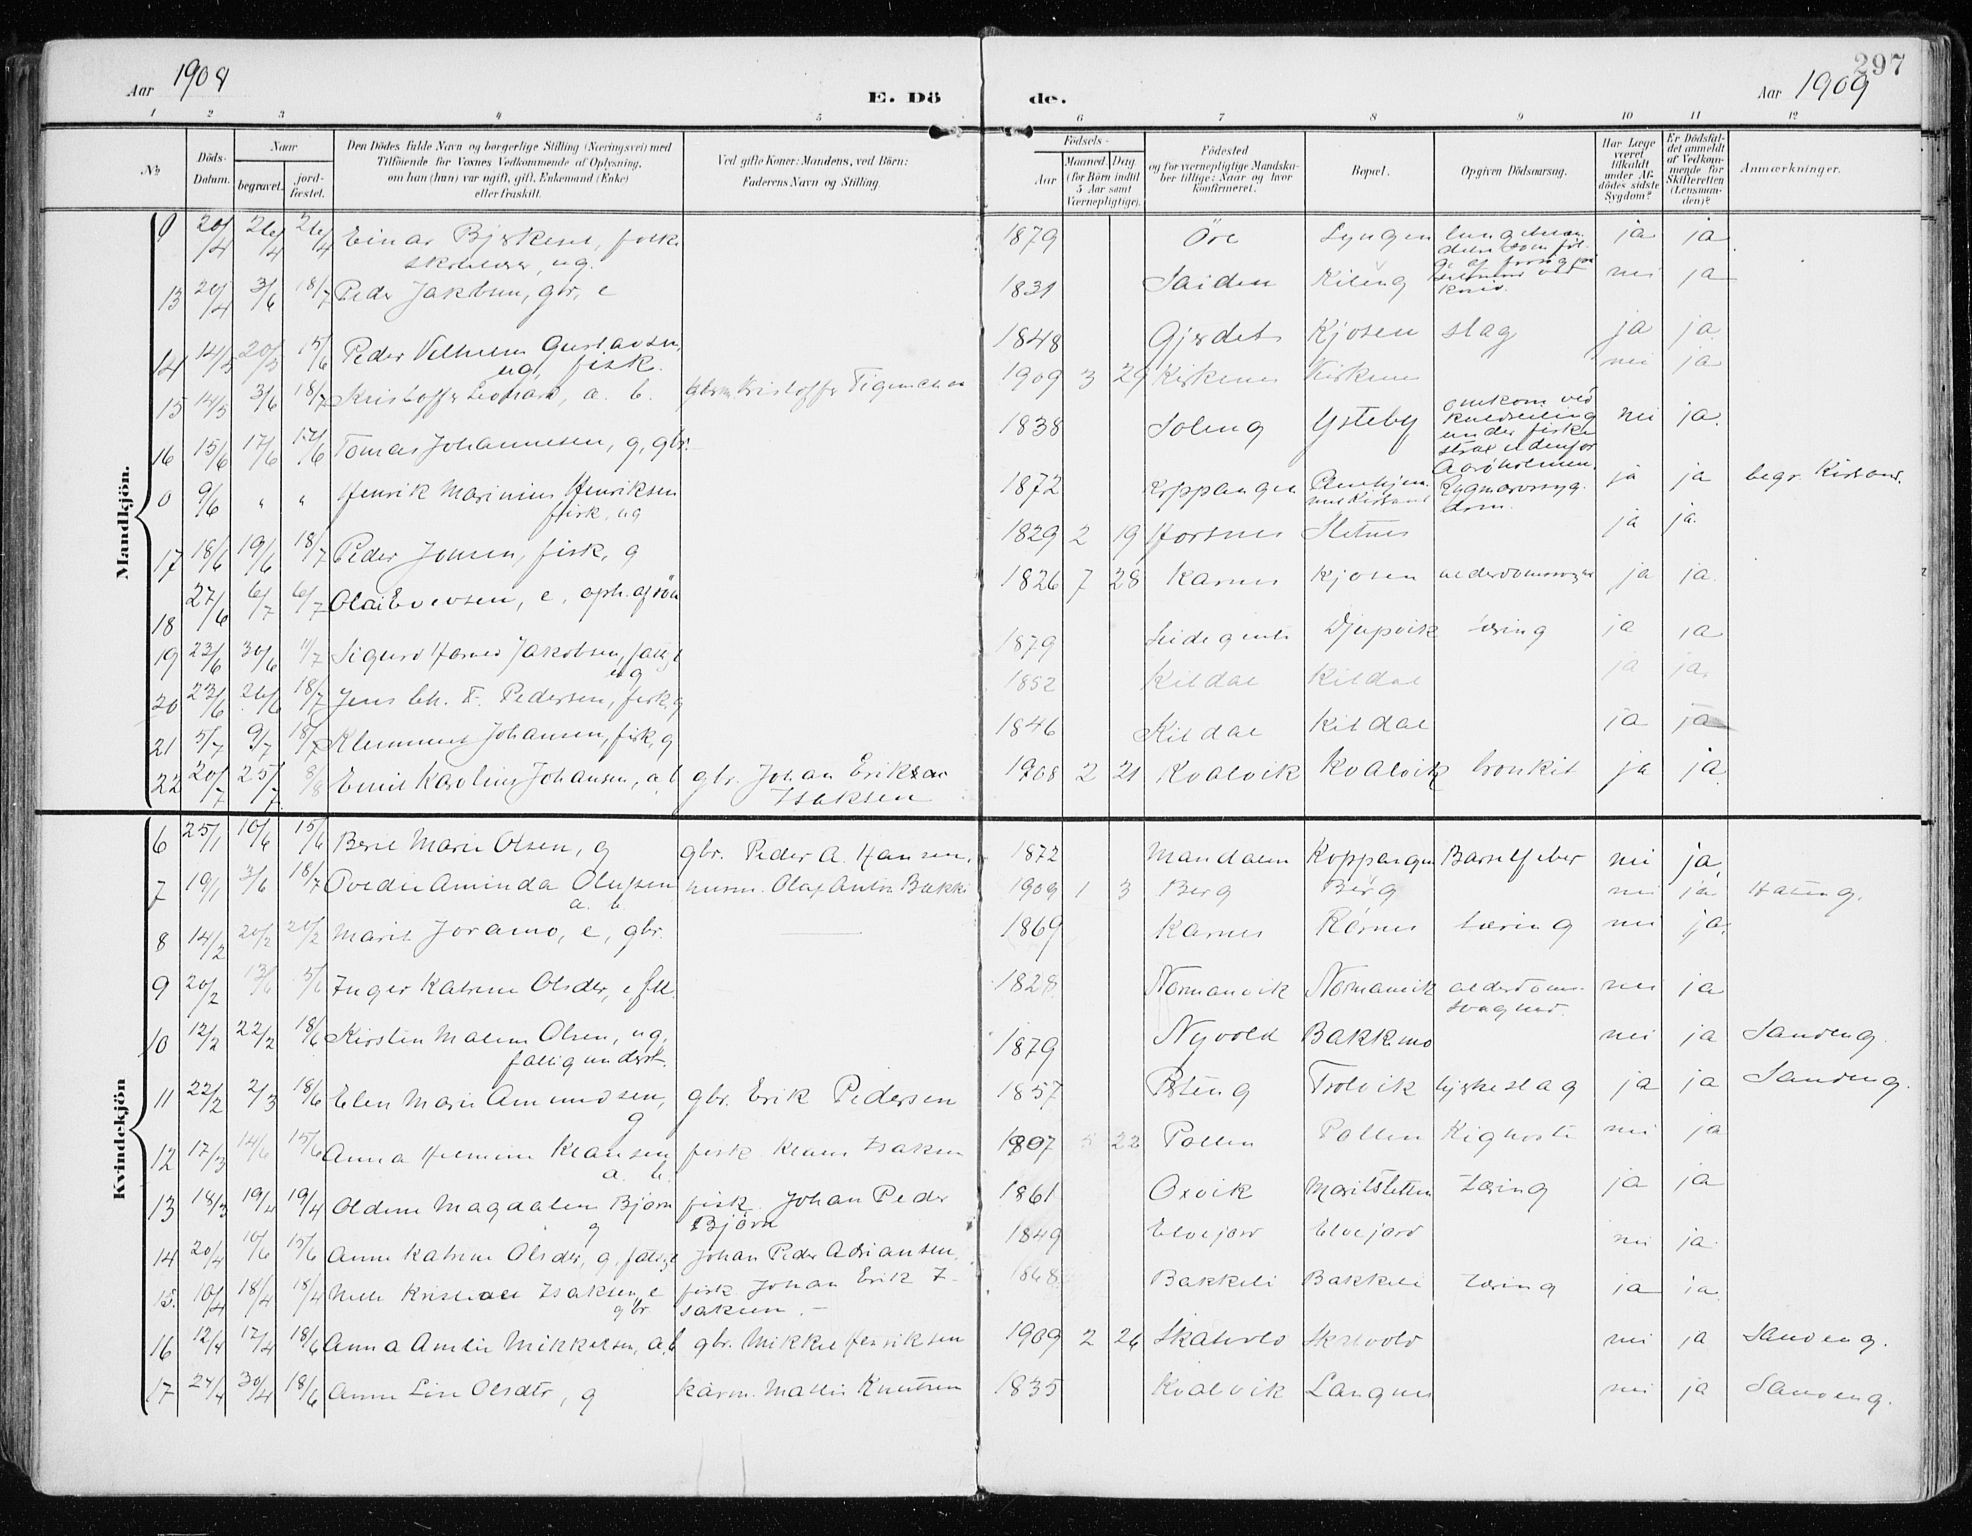 297
Aar 1909
E. Dö
de.
Aar 1909
1 2 3 4 5 6 7 8 9 10 11 12
No
Döds-
Datum.
Naar
begravet.
jord-
fæstet.
Den Dödes fulde Navn og borgerlige Stilling (Næringsvei) med
Tilföiende for Voxnes Vedkommende af Oplysning,
om han (hun) var ugift, gift, Enkemand (Enke)
eller fraskilt.
Ved gifte Koner: Mandens, ved Börn:
Faderens Navn og Stilling.
Födsels-
Aar
Maaned
Dag
(for Börn indtil
5 Aar samt
Værnepligtige).
Födested
og for værnepligtige Mandska-
ber tillige: Naar og hvor
konfirmeret.
Bopæl.
Opgiven Dödsaarsag.
Har Læge
været
tilkaldt
under Af-
dödes sidste
Sygdom?
Er Dödsfal-
det anmeldt
af Vedkom-
mende for
Skifteretten
(Lensman-
den)?
Anmærkninger.
Mandkjön.
0 20/4 26/4 26/4 Einar Bjerkeset, folke 1879 Öre Lyngen ja ja
skolelærer, ug.
13 20/4 3/6 18/7 Peder Jakobsen, gbr, e 1831 Saiden Kileng nei ja
kniv.
14 14/5 20/5 15/6 Peder Vilhelm Gustavsen, 1848 Gjerdet Kjosen slag ja ja
ug, fisk.
15 14/5 3/6 18/7 Kristoffer Leonard, a. b. gbr. Kristoffer 1909 3 29 Kirkenes Kirkenes nei ja
16 15/6 17/6 17/6 Tomas Johannesen, g, gbr. 1838 Soleng Ysteby omkom ved nei ja.
kuldseiling
under fiske
strax udenfor
Aaröholmen.
0 9/6 " " Henrik Marinius Henriksen 1872 Koppangen Rygmarvssyg. ja ja begr. Kirsand.
fisk, ug dom.
17 18/6 19/6 18/7 Peder Jonsen, fisk, g 1829 2 19 Horsnes Sletnes ja ja.
18 27/6 6/7 6/7 e, oph. af sön 1826 7 28 Karnes Kjosen ja ja.
19 23/6 30/6 11/7 Sigurd Jakobsen, 1879 Djupvik tæring ja ja
ug
20 23/6 26/6 18/7 Jens Ch. F. Pedersen, fisk, g 1852 Kildal Kildal ja ja.
21 5/7 9/7 18/7 Klemmet Johansen, fisk, g 1846 Kildal Kildal ja ja
22 20/7 25/7 8/8 Emil Karolius Johansen, a,b gbr. Johan Erik 1908 2 21 Kvalvik Kvalvik bronkit ja ja
Isaksen
Kvindekjön
6 25/1 10/6 15/6 Beret Marie Olsen, g gbr. Peder A. Hansen, 1872 Mandalen Koppangen Barselfeber nei ja
7 19/1 3/6 18/7 Aminda Olufsen murm. Olaf Anton Bakke 1909 1 3 Berg Berg nei ja Hateng.
a. b.
8 14/2 20/2 20/2 Marit Joramo, e, gbr. 1869 Karnes Karnes tæring nei ja.
9 20/2 13/6 15/6 Inger Katrine Olsdtr, e, 1828 Normanvik Normanvik alderdoms- nei ja
svaghed.
10 12/2 22/2 18/6 Kirsten Malene Olsen, ug. 1879 Nyvold Bakkemo nei ja Sandeng.
fattigunderst.
11 22/2 2/3 18/6 Elen Marie Amundsen, gbr. Erik Pedersen 1857 Trolvik hjerteslag ja ja Sandeng.
g
12 17/3 14/6 15/6 Anna Klausen fisk. Klaus Isaksen 1907 5 22 Pollen Pollen Kighoste nei ja
a. b.
13 18/3 19/4 19/4 Oldine Magdalene Björn fisk. Johan Peder 1861 Oxvik Maritsletten tæring ja ja
g Björn
14 20/4 10/6 15/6 Anne Katrine Olsdtr, g, Johan Peder Adriansen. 1849 Elvejord Elvejord nei ja.
15. 10/4 18/4 18/4 Isaksen, e fisk. Johan Erik I- 1868 Bakkeli Bakkeli tæring ja ja.
gbr saksen.-
16 12/4 17/4 18/6 Anna Amlie Mikkelsen, a,b gbr. Mikkel Henriksen 1909 2 26 nei ja Sandeng.
17 24/4 30/4 18/6 Anne Lise Olsdtr, g kaarm. Mathis Knutsen 1835 Kvalvik Langnes nei ja Sandeng.